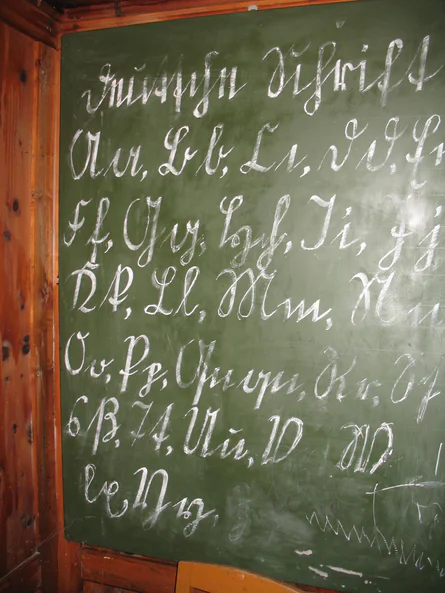 Deutsche Schrift
Aa, Bb, Cc, Dd, Ee
Ff, Gg, Hh, Ii, Jj
Kk, Ll, Mm, Nn
Oo, Pp, Ququ, Rr, Sſ
sß, Tt, Uu, V W
Xx Yy,